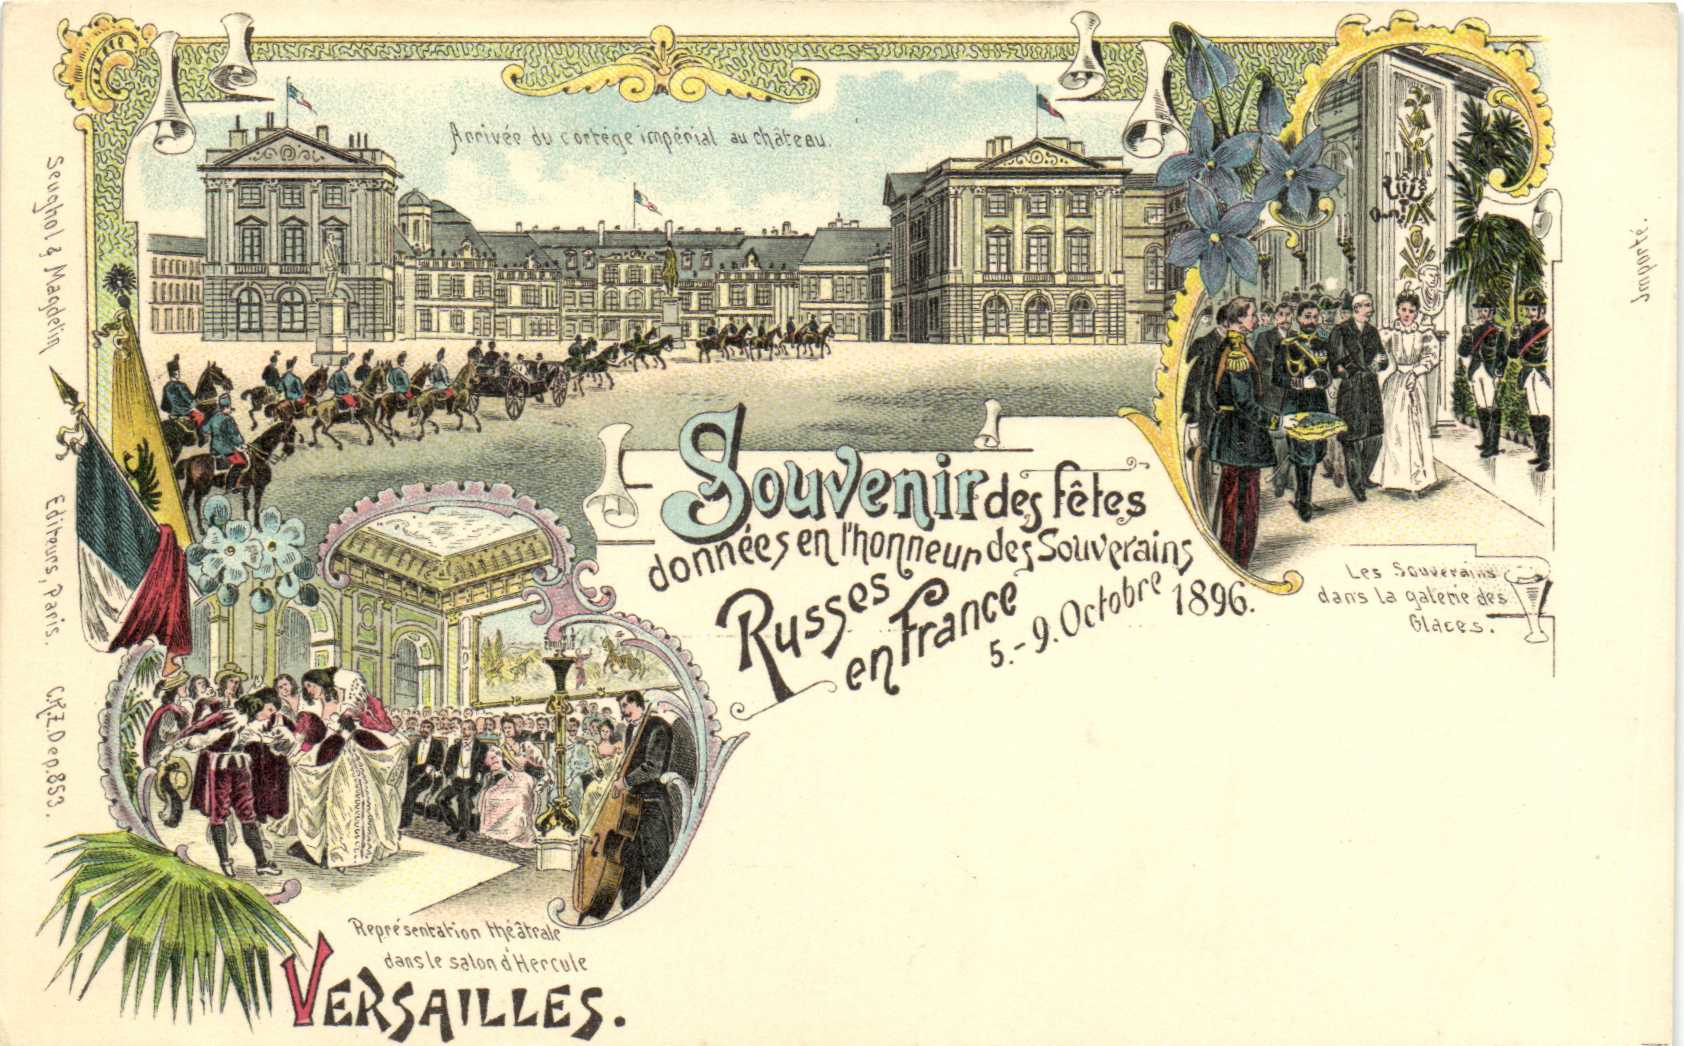 Arrivée du cortège impérial au château.
Souvenir des fêtes
données en l'honneur des Souverains
Russes
en France
5.-9. Octobre 1896.
Les Souverains
dans la galerie des
Glaces.
Représentation théâtrale
dans le salon d'Hercule
VERSAILLES.
Seughol & Magdelin
Editeurs, Paris.
C.K.Z. Dep. 853.
Importé.